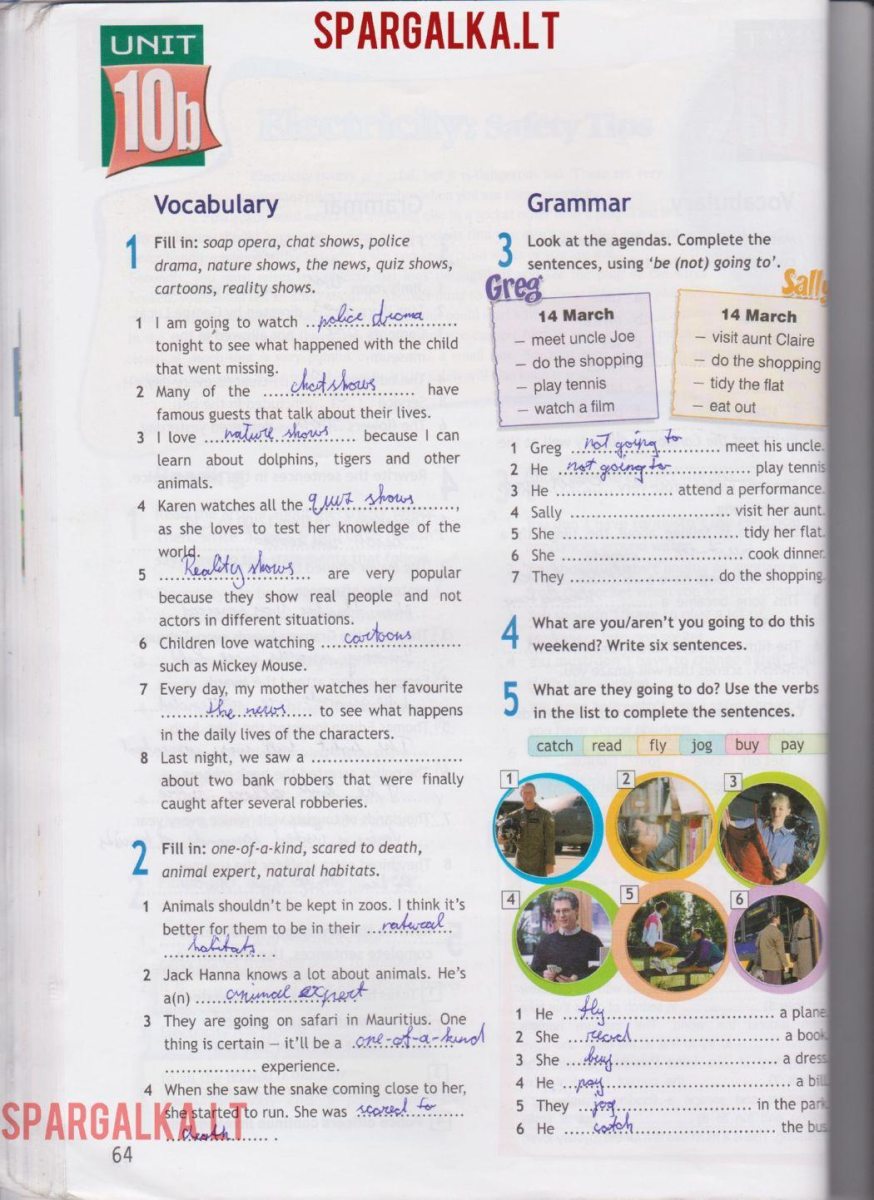 SPARGALKA.LT
UNIT
10b
Vocabulary
1 Fill in: soap opera, chat shows, police
drama, nature shows, the news, quiz shows,
cartoons, reality shows.
1 I am going to watch ..police drama..........
tonight to see what happened with the child
that went missing.
2 Many of the ......chat shows.......... have
famous guests that talk about their lives.
3 I love ....nature shows..... because I can
learn about dolphins, tigers and other
animals.
4 Karen watches all the quiz shows..............,
as she loves to test her knowledge of the
world.
5 ....Reality shows.... are very popular
because they show real people and not
actors in different situations.
6 Children love watching ....cartoons..........
such as Mickey Mouse.
7 Every day, my mother watches her favourite
........the news........ to see what happens
in the daily lives of the characters.
8 Last night, we saw a ............................
about two bank robbers that were finally
caught after several robberies.
2 Fill in: one-of-a-kind, scared to death,
animal expert, natural habitats.
1 Animals shouldn't be kept in zoos. I think it's
better for them to be in their ...natural
...habitats.... .
2 Jack Hanna knows a lot about animals. He's
a(n) ......animal expert
3 They are going on safari in Mauritius. One
thing is certain – it'll be a .one-of-a-kind
.................. experience.
4 When she saw the snake coming close to her,
she started to run. She was scared to.....
...death....... .
SPARGALKA.LT
64
Grammar
3 Look at the agendas. Complete the
sentences, using 'be (not) going to'.
Greg
14 March
– meet uncle Joe
– do the shopping
– play tennis
– watch a film
Sally
14 March
– visit aunt Claire
– do the shopping
– tidy the flat
– eat out
1 Greg ...not going to....... meet his uncle.
2 He ..not going to................ play tennis
3 He ...................... attend a performance.
4 Sally ................................ visit her aunt.
5 She .................................. tidy her flat.
6 She .................................. cook dinner.
7 They ........................... do the shopping.
4 What are you/aren't you going to do this
weekend? Write six sentences.
5 What are they going to do? Use the verbs
in the list to complete the sentences.
catch read fly jog buy pay
1
2
3
4
5
6
1 He ...fly.................................. a plane
2 She ...read................................ a book.
3 She ....buy................................ a dress.
4 He ...pay................................... a bill.
5 They ..jog............................ in the park.
6 He .....catch............................. the bus.